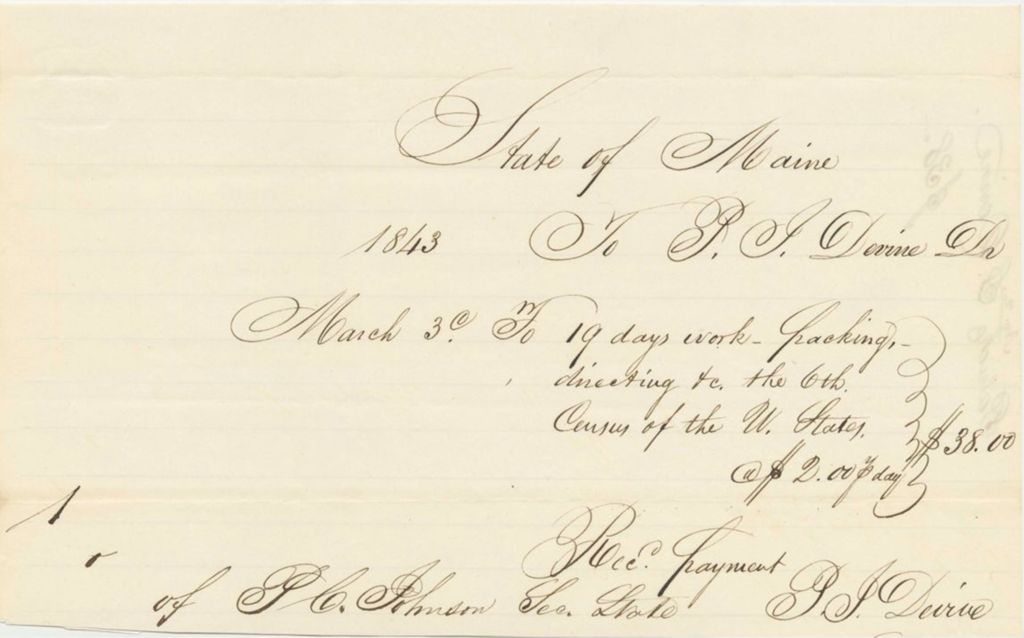 State of Maine
1843 To P. J. Devine Dr
March 3d. To 19 days work - packing,-
directing &c. the 6th.
Census of the U. States.
@ $2.00 ⅌ day
$38.00
Recd. payment
of P. C. Johnson Sec. State P. J. Devine